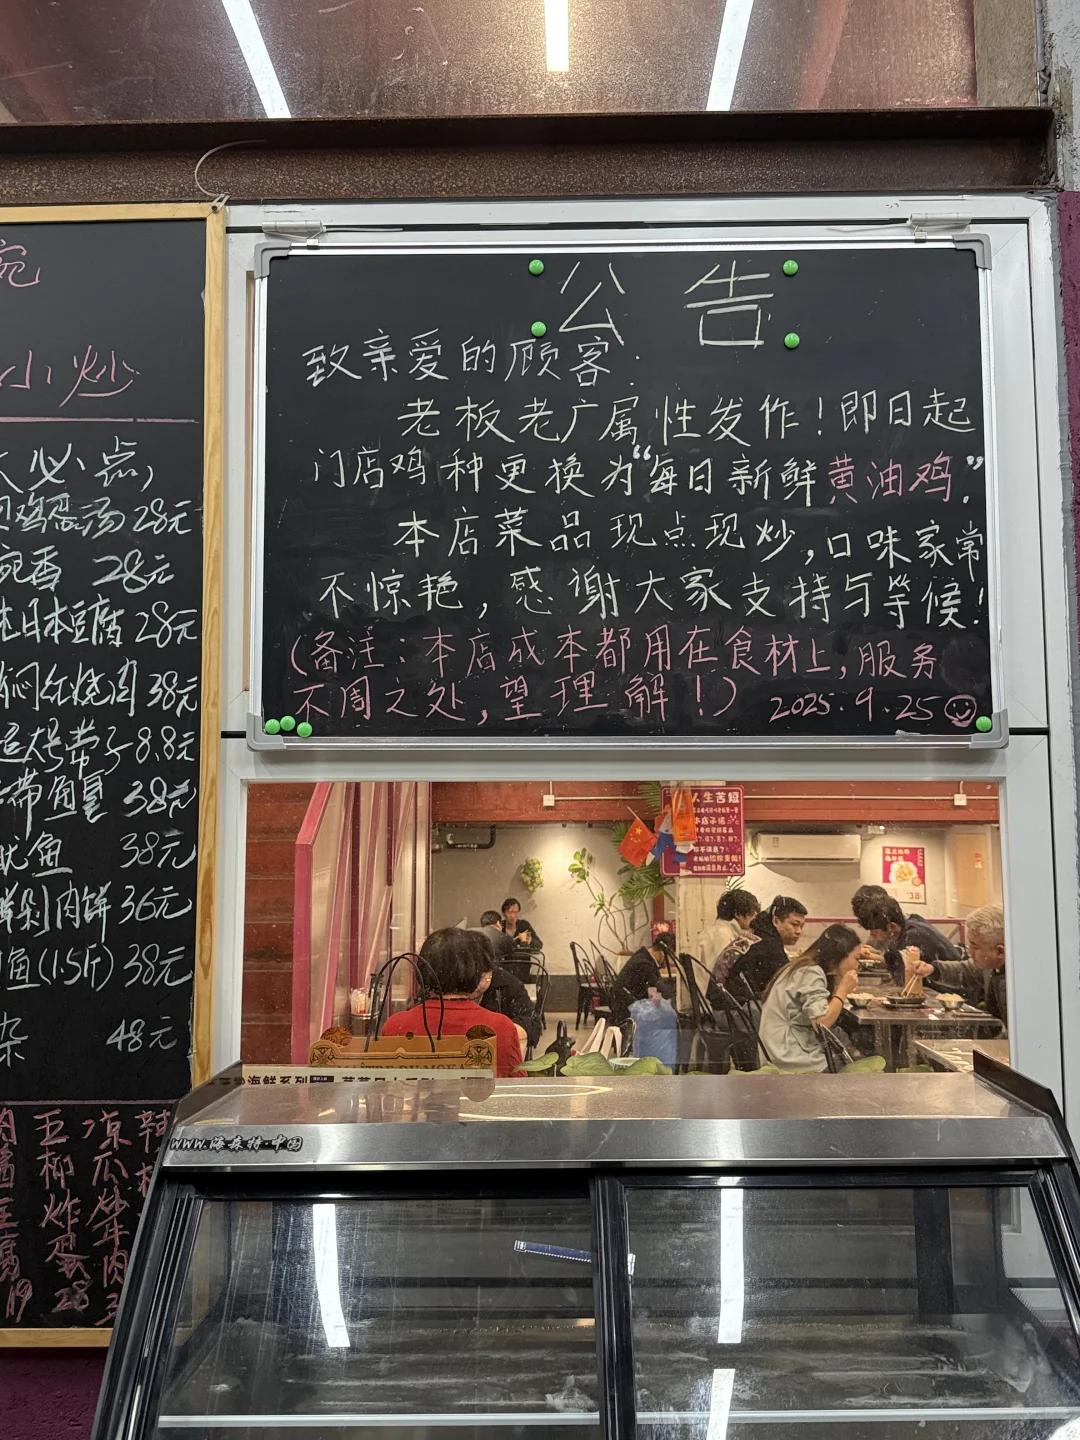 公告
致亲爱的顾客:
老板老广属性发作！即日起
门店鸡种更换为“每日新鲜黄油鸡”。
本店菜品现点现炒,口味家常
不惊艳,感谢大家支持与等候!
(备注:本店成本都用在食材上,服务
不周之处,望理解!)
2025.9.25
小炒
必点
鸡蛋汤 28元
28元
日本豆腐 28元
焖红烧肉 38元
8.8元
38元
鱿鱼 38元
剁肉饼 36元
鱼(1.5斤) 38元
杂 48元
五柳炸蛋 28
凉瓜炒牛肉
19
人生苦短
海鲜系列
www.海森特·中国